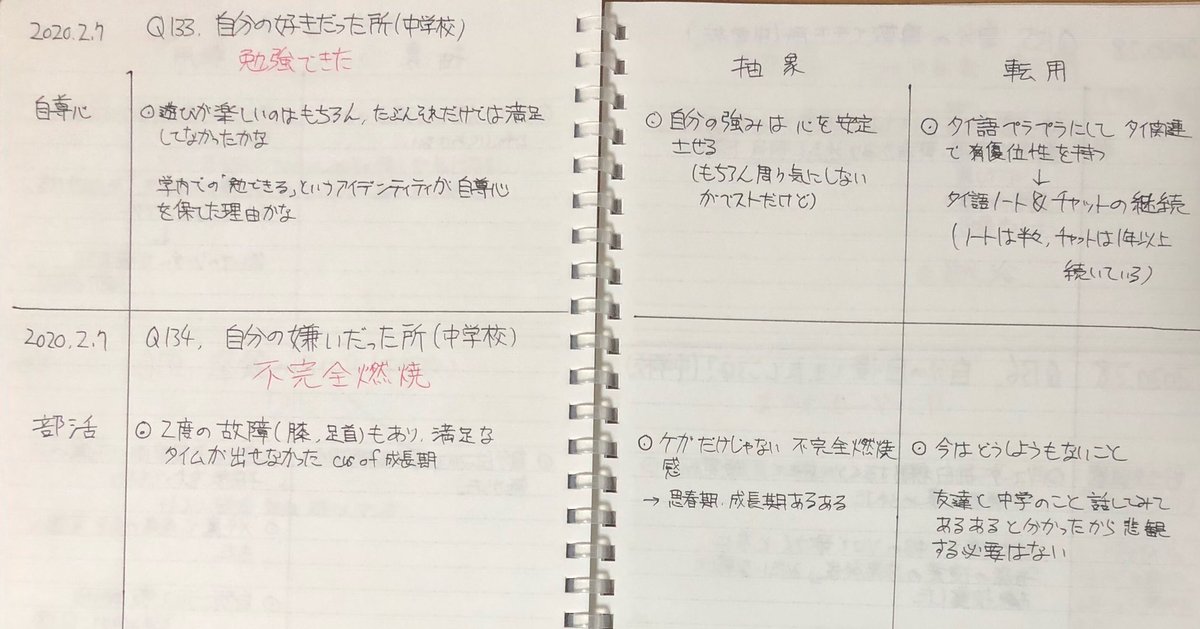 2020.2.7 Q133. 自分の好きだった所(中学校)
勉強できた
自尊心
⊙遊びが楽しいのはもちろん, たぶんそれだけでは満足
してなかったかな
学内での「勉できる」というアイデンティティが自尊心
を保てた理由かな
抽象
転用
⊙自分の強みは心を安定
させる
(もちろん周り気にしない
がベストだけど)
⊙タイ語ペラペラにして タイ関連
で優位性を持つ
↓
タイ語ノート&チャットの継続
(ノートは半々, チャットは1年以上
続いている)
2020.2.7 Q134. 自分の嫌いだった所(中学校)
不完全燃焼
部活
⊙2度の故障(膝,足首)もあり,満足な
タイムが出せなかった cus of 成長期
⊙ケガだけじゃない 不完全燃焼
感
→思春期.成長期あるある
⊙今はどうしようもないこと
友達と中学のこと話してみて
あるあると分かったから悲観
する必要はない